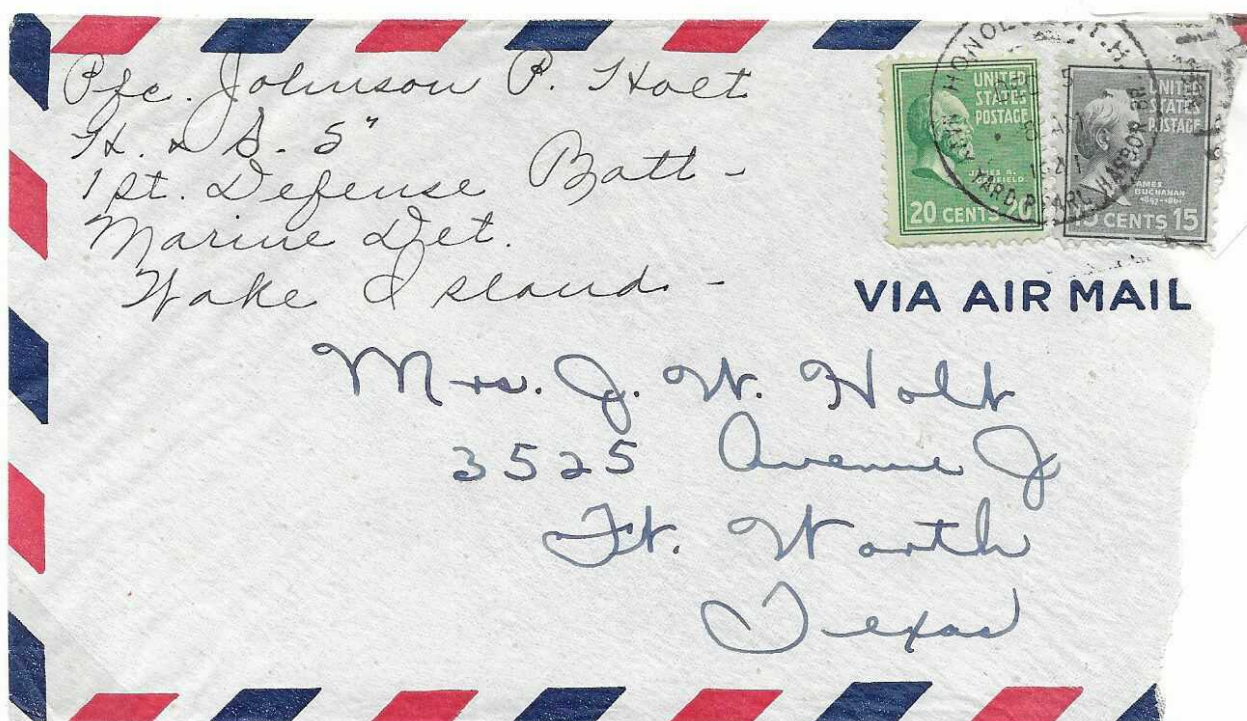 Pfc. Johnson P. Holt
H. & S. 5"
1st. Defense Batt -
Marine Det.
Wake Island -
HONOL T.H.
NAVY YARD PEARL HARBOR BR.
DEC 5
8 AM
UNITED
STATES
POSTAGE
JAMES A.
GARFIELD
20 CENTS
UNITED
STATES
POSTAGE
JAMES
BUCHANAN
1857-1861
15 CENTS 15
VIA AIR MAIL
Mrs. J. W. Holt
3525 Avenue J
Ft. Worth
Texas